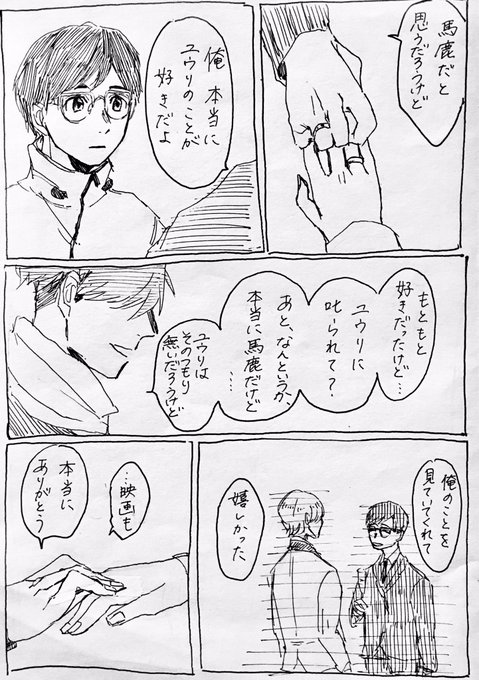 馬鹿だと
思うだろうけど
俺 本当に
ユウリのことが
好きだよ
もともと
好きだったけど…
ユウリに
叱られて？
あと、なんというか、
本当に馬鹿だけど
…
ユウリは
そのつもり
無いだろうけど
俺のことを
見ていてくれて
嬉しかった
…映画も
本当に
ありがとう